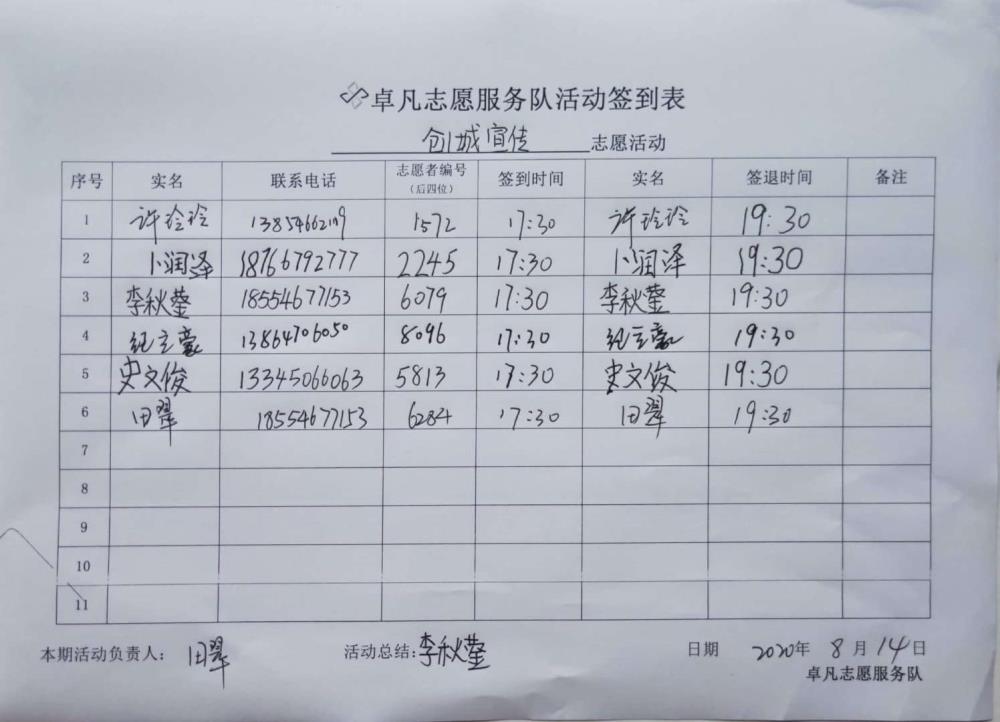 卓凡志愿服务队活动签到表
创城宣传 志愿活动
序号 实名 联系电话 志愿者编号（后四位） 签到时间 实名 签退时间 备注
1 许玲玲 1572 17:30 许玲玲 19:30
2 卜润泽 18766792777 2245 17:30 卜润泽 19:30
3 李秋莹 18554677153 6079 17:30 李秋莹 19:30
4 纪立豪 13864706050 8096 17:30 纪立豪 19:30
5 史文俊 13345066063 5813 17:30 史文俊 19:30
6 田翠 18554677153 6284 17:30 田翠 19:30
7
8
9
10
11
本期活动负责人：田翠 活动总结：李秋莹 日期 2020年 8 月 14 日
卓凡志愿服务队